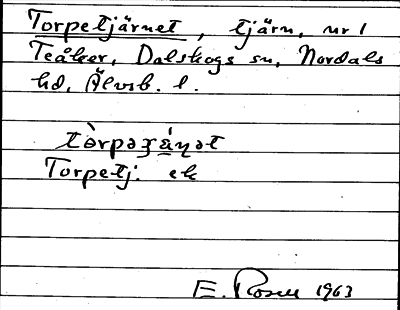 Torpetjärnet, tjärn, nr 1
Teåker, Dalskogs sn, Nordals
hd, Älvsb. l.
tò̀rpəʒä́ṇət
Torpetj. ek
E. Rosell 1963